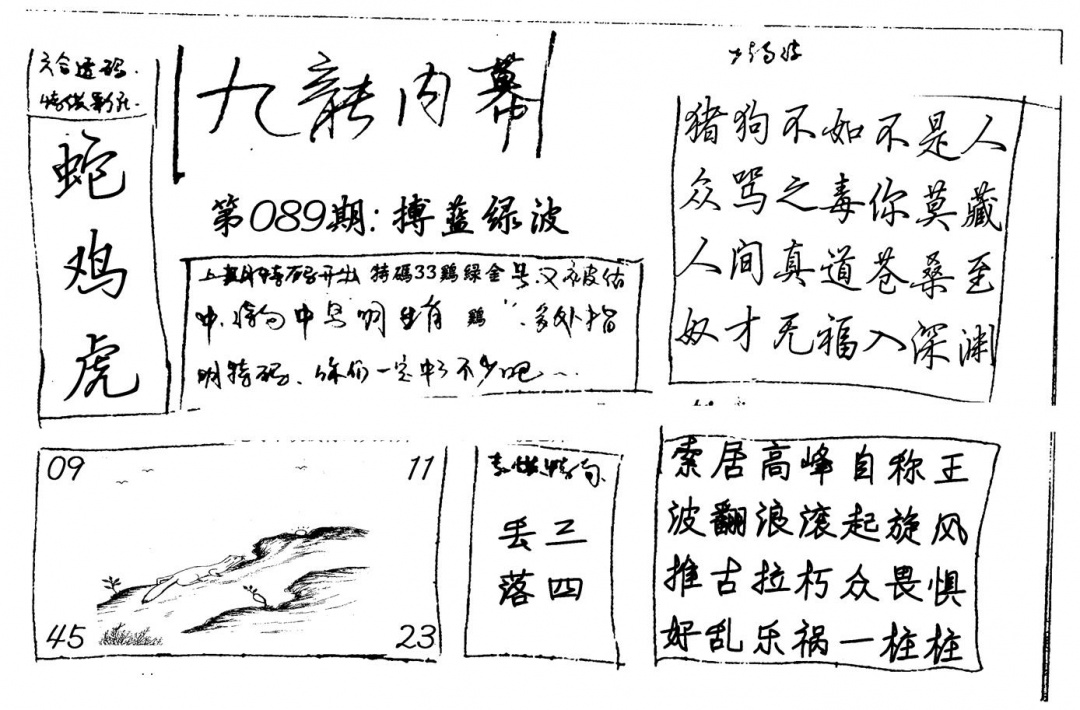 六合透码
九龍内幕
蛇
鸡
虎
第089期:搏蓝绿波
上期特码开出 特碼33鶏绿金 号又被估
中 中 鶏 多处指
明特码、你们一定中了不少吧
猪狗不如不是人
众骂之毒你莫藏
人间真道苍桑至
奴才无福入深渊
09 11
45 23
丢三
落四
索居高峰自称王
波翻浪滚起旋风
推古拉朽众畏惧
好乱乐祸一桩桩